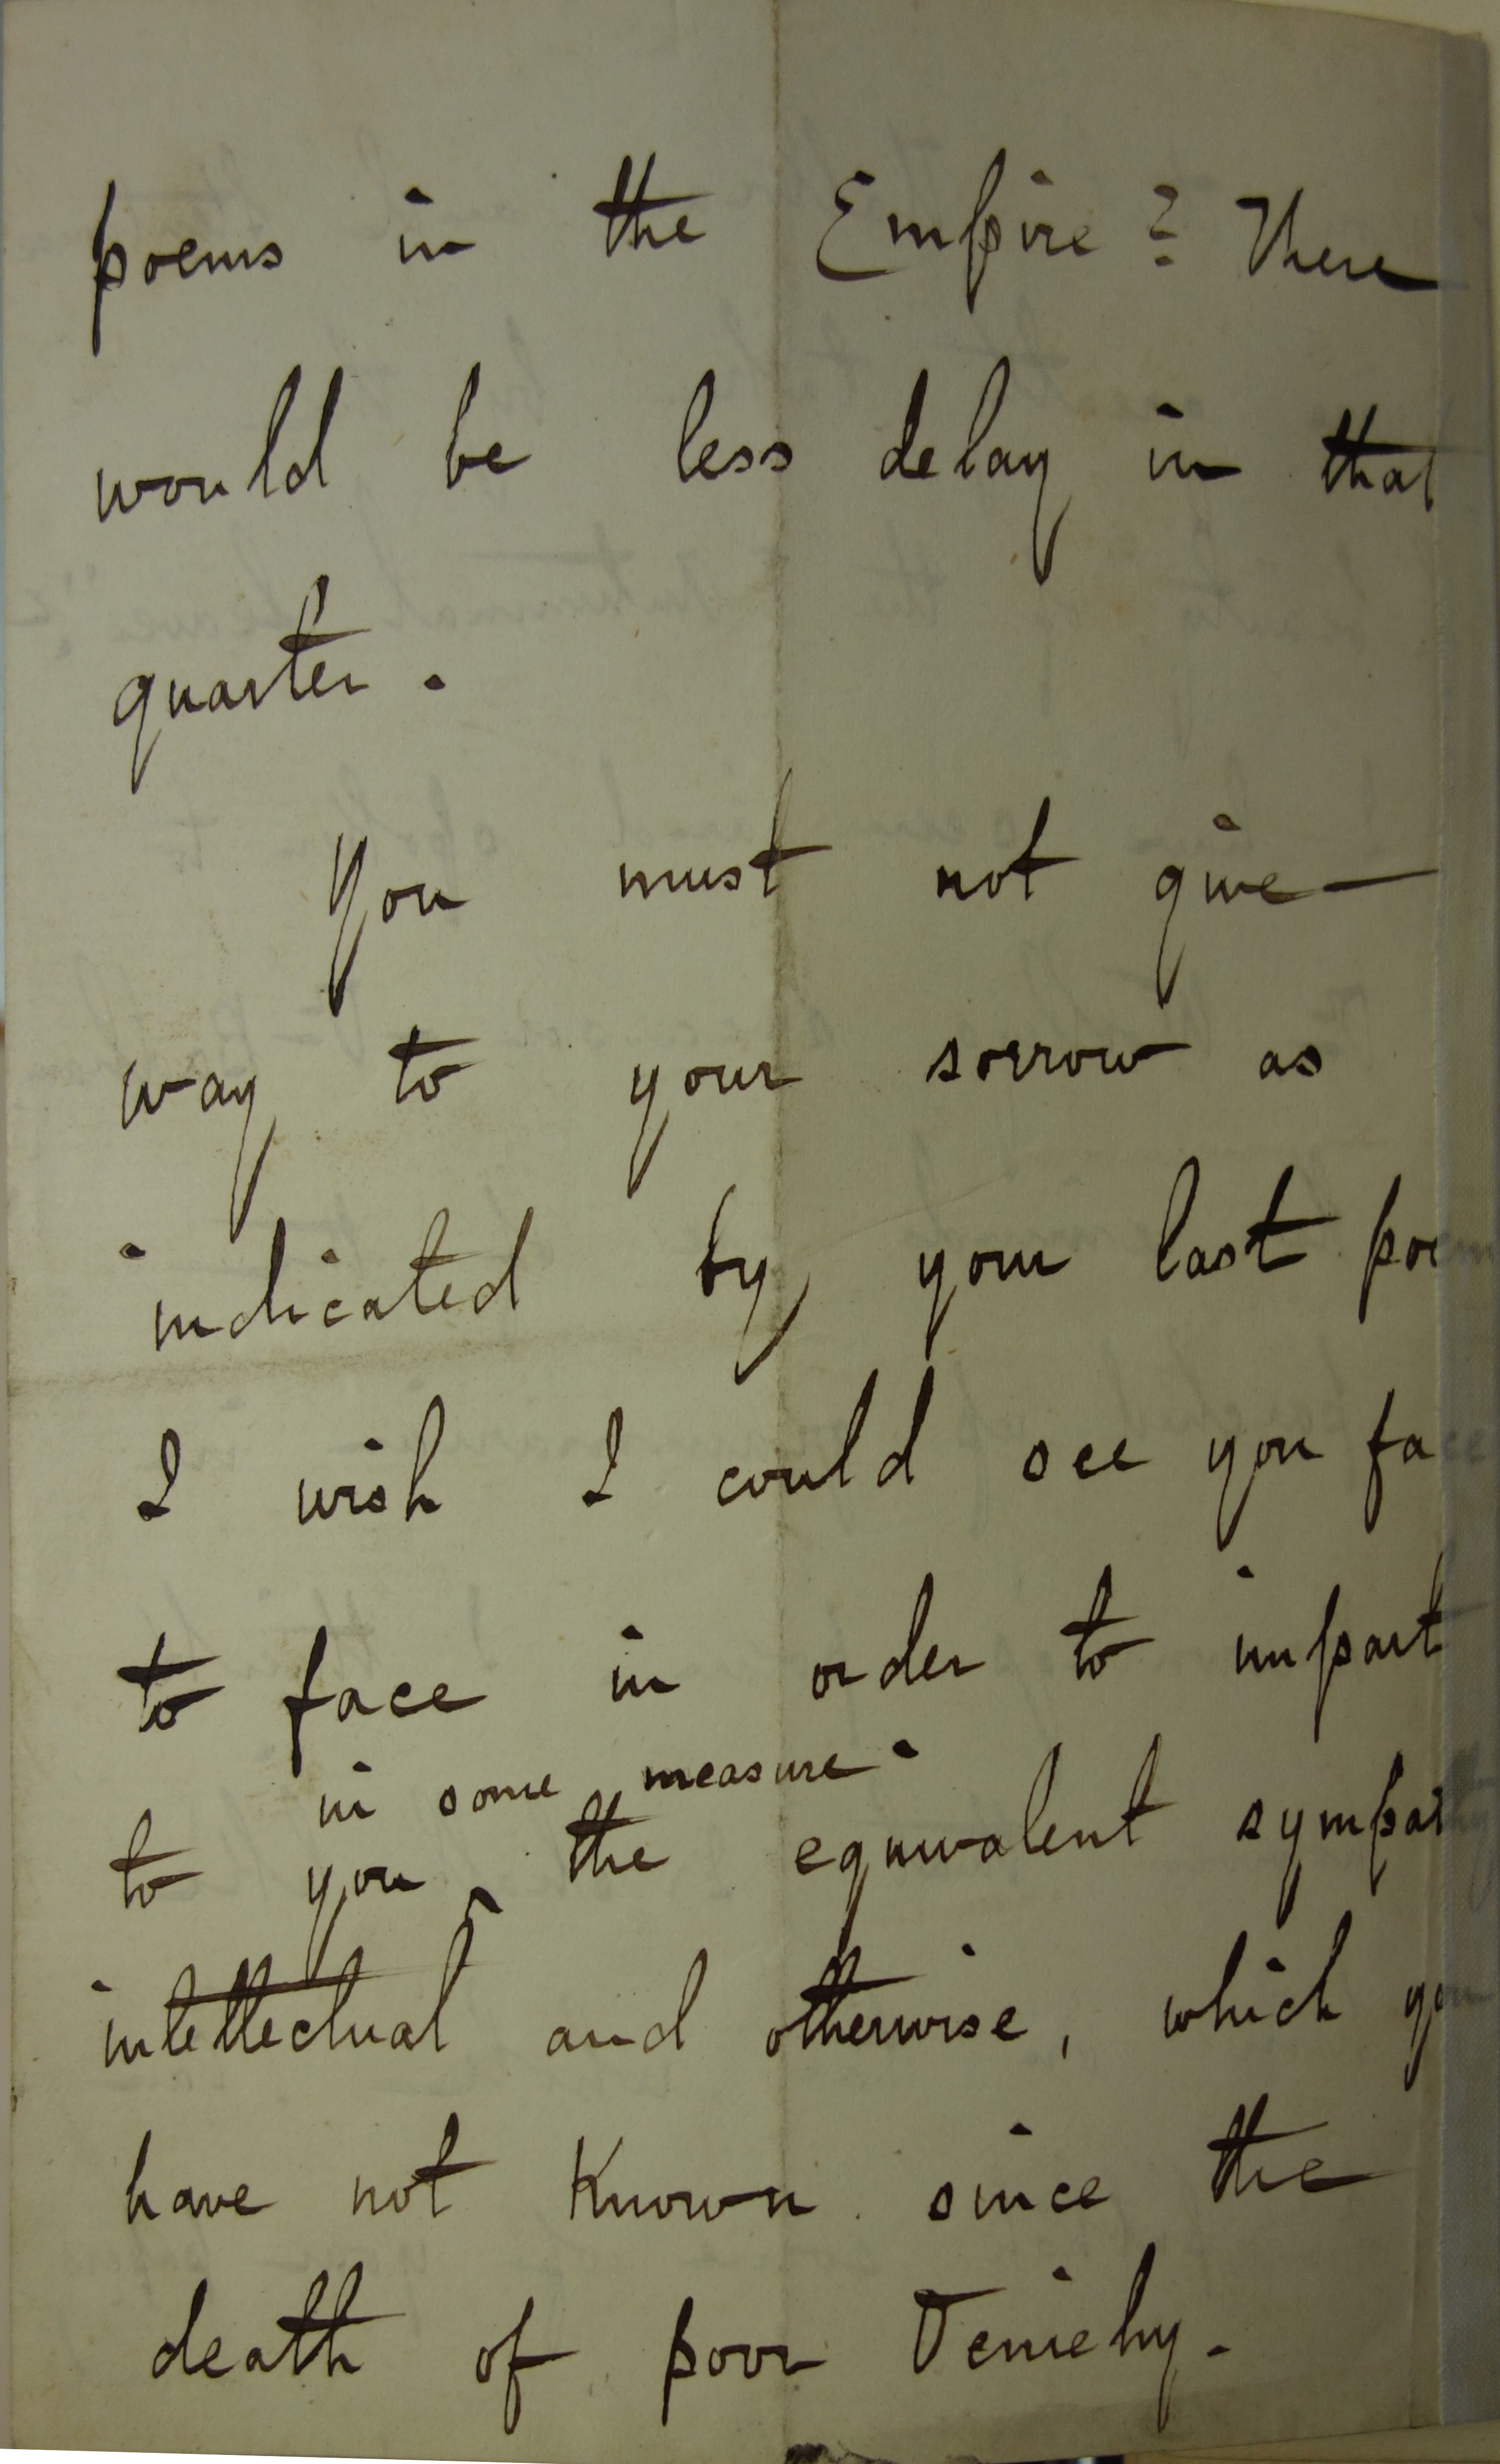 poems in the Empire? There
would be less delay in that
quarter.
You must not give
way to your sorrow as
indicated by your last poem
I wish I could see you face
to face in order to impart
in some measure
to you ^ the equivalent sympathy
intellectual and otherwise, which you
have not known since the
death of poor Deniehy.